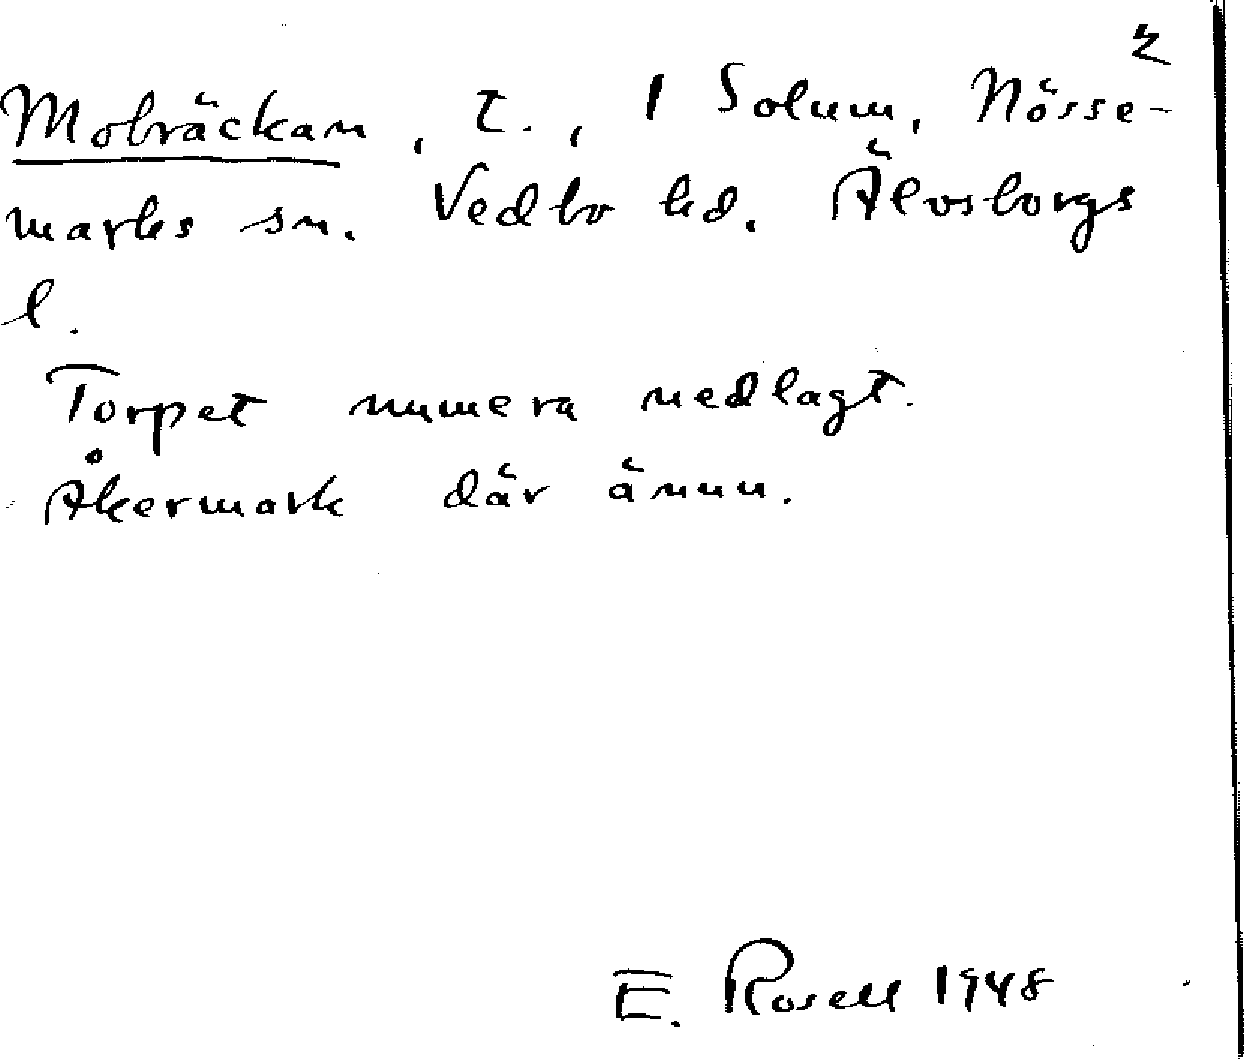 2
Mobräckan, t., 1 Solum, Nösse-
marks sn. Vedbo hd. Älvsborgs
l.
Torpet numera nedlagt.
Åkermark där ännu.
E. Rosell 1948